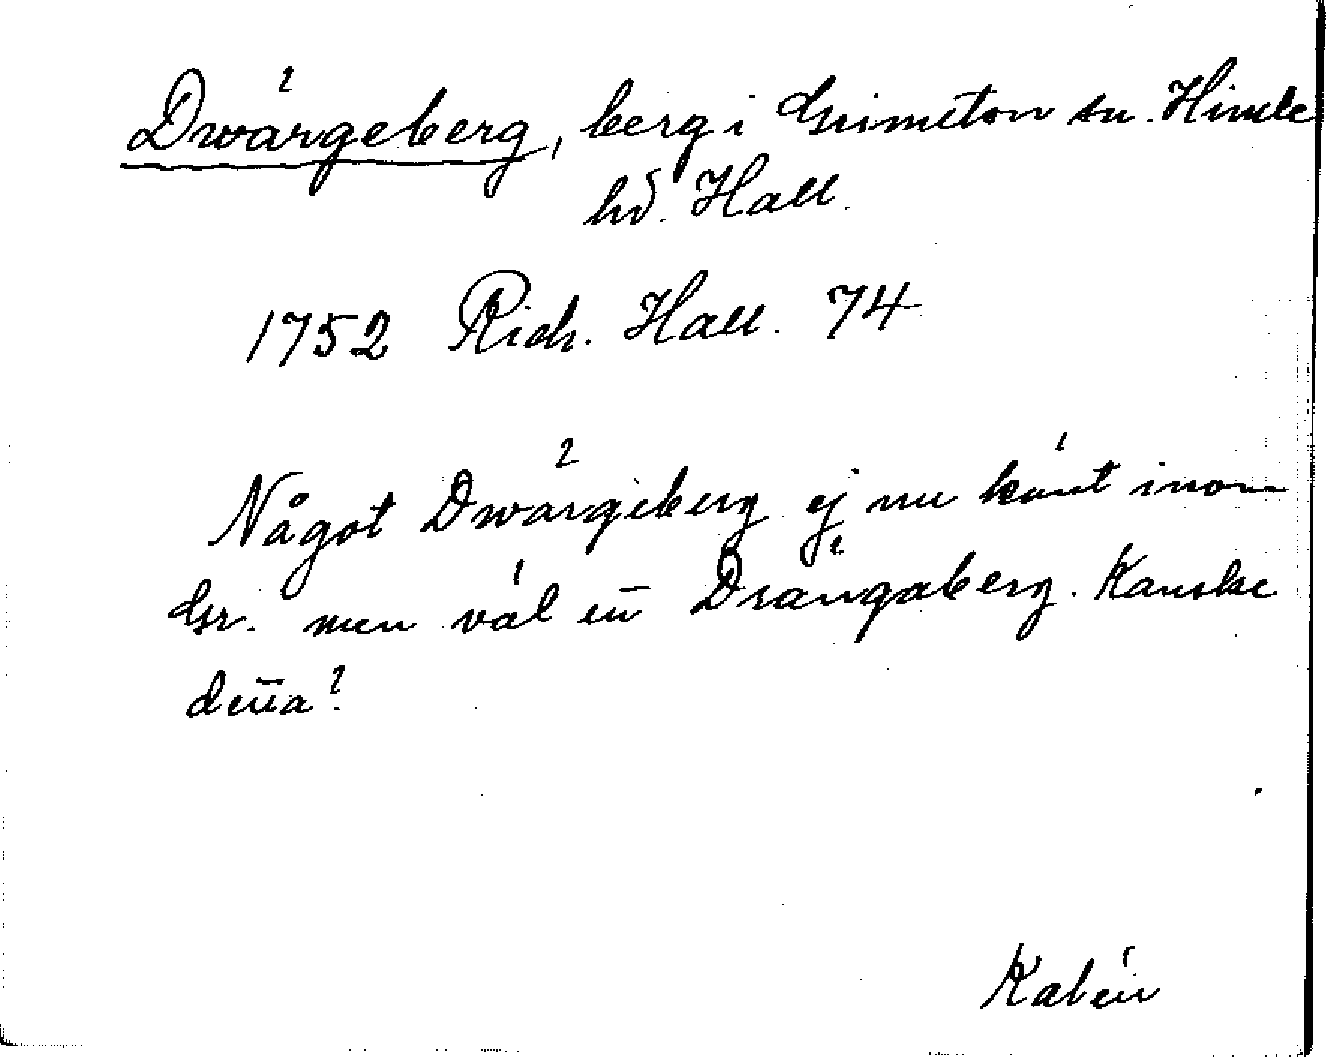 Dwärgeberg, berg i Grimeton sn. Himle
hd. Hall.
1752 Rich. Hall. 74
Något Dwärgeberg ej nu känt inom
Gr. men väl en̄ Drängaberg. Kanske
den̄a?
Kalén